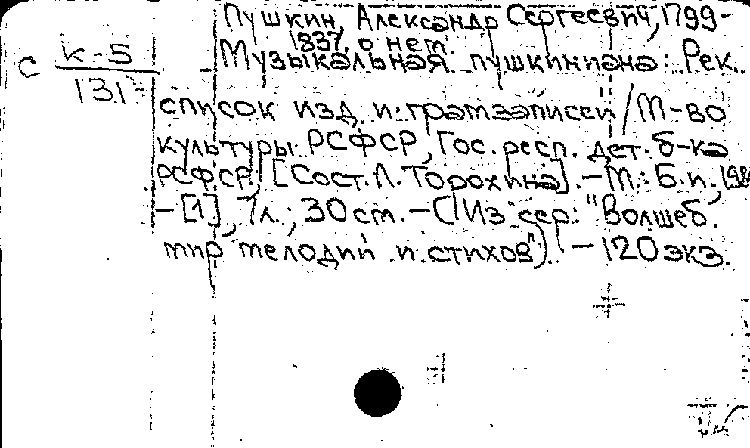 Пушкин, Александр Сергеевич, 1799-
1837, о нем.
с к-5
131
Музыкальная пушкиниана: Рек.
список изд. и грамзаписей / М-во
культуры РСФСР, Гос. респ. дет. б-ка
РСФСР; [Сост. Л. Торохина]. - М.: Б.и.,
- [1], 7 л.; 30 см. - (Из сер.: "Волшеб.
мир мелодий и стихов"). - 120 экз.